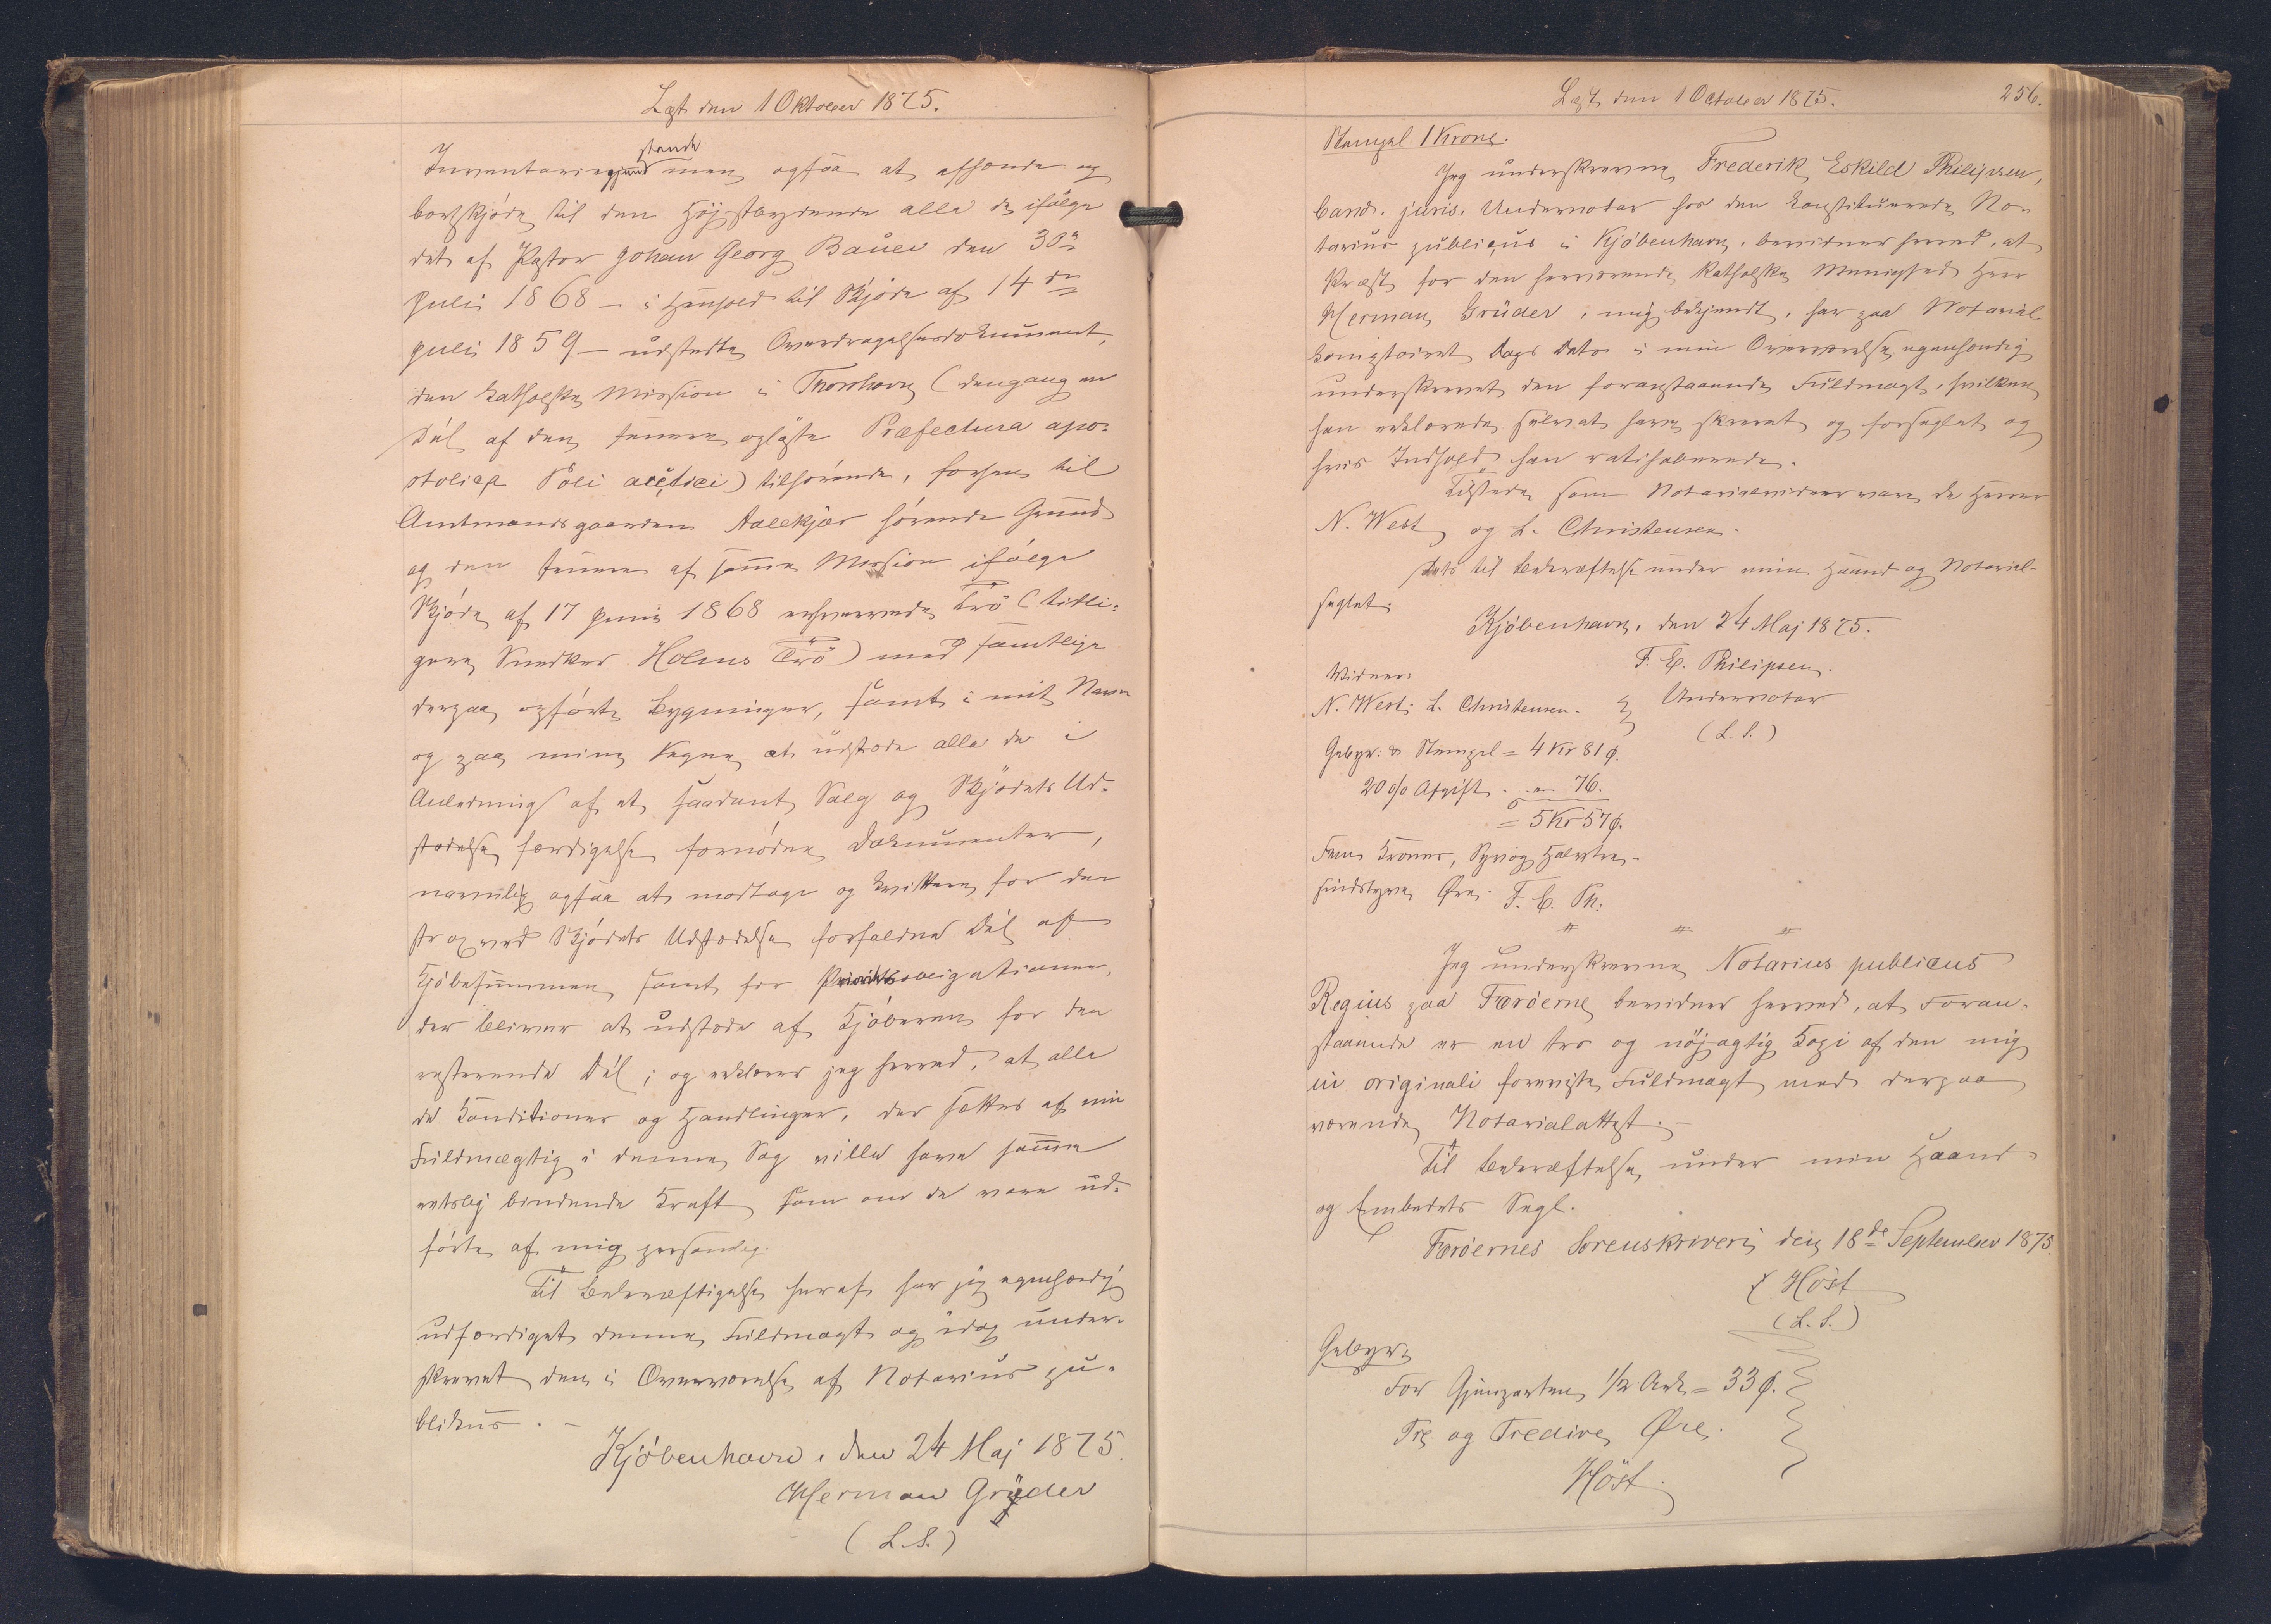 Læst den 1 Oktober 1875.
Inventariegjenstande men ogsaa at afhænde og
bortskjøde til den Højstbydende alle de ifølge
det af Pastor Johan Georg Bauer den 30te
Juli 1868 – i Henhold til Skjøde af 14de
Juli 1859 – udstedte Overdragelsesdokument,
den katholske Mission i Thorshavn (dengang en
Del af den senere opløste Præfectura apo-
stolica Poli arctici) tilhørende, forhen til
Amtmandsgaarden Aalekjær hørende Grund
og den senere af samme Mission ifølge
Skjøde af 17 Juni 1868 erhvervede Trö (tidli-
gere Snedker Holms Trö) med samtlige
derpaa opførte Bygninger, samt i mit Navn
og paa mine Vegne at udstede alle de i
Anledning af et saadant Salg og Skjødets Ud-
stedelse færdigelse fornødne Dokumenter,
navnlig ogsaa at modtage og kvittere for den
strax ved Skjødets Udstedelse forfaldne Del af
Kjøbesummen, samt for Prioritetsobligationen,
der bliver at udstede af Kjøberen for den
resterende Del; og erklærer jeg herved, at alle
de Konditioner og Handlinger, der sættes af min
Fuldmægtig i denne Sag ville have samme
retslig bindende Kraft som om de vare ud-
førte af mig personlig.
Til Bekræftigelse heraf har jeg egenhændig
udfærdiget denne Fuldmagt og idag under-
skrevet den i Overværelse af Notarius pu-
blikus. –
Kjöbenhavn, den 24 Maj 1875.
Herman Grüder
(L.S.)
Læst den 1 October 1875.
256.
Stempel 1 Krone.
Jeg underskrevne Frederik Eskild Philipsen,
Cand. juris. Undernotar hos den konstituerede No-
tarius publicus i Kjöbenhavn, bevidner herved, at
Præst for den herværende katholske Menighed Herr
Herman Grüder, mig bekjendt, har paa Notarial-
kontoiret Dags Dato i min Overværelse egenhændig
underskrevet den foranstaaende Fuldmagt, hvilken
han erklærede selv at have skrevet og forseglet og
hvis Indhold han ratihaberede.
Tilstede som Notarialvidner vare de Herrer
N. West og L. Christensen.
Dets til Bekræftelse under min Haand og Notarial-
seglet.
Kjöbenhavn, den 24 Maj 1875.
F. E. Philipsen.
Undernotar
(L.S.)
Vidner:
N. West. L. Christensen.
Gebyr: & Stempel = 4 Kr 81 Ø.
20 % Afgift . „ 76.
= 5 Kr 57 Ø.
Fem Kroner, Syv og Halvtred-
sindstyve Øre. F. E. Ph.
Jeg underskrevne Notarius publicus
Regius paa Færöerne bevidner herved, at Foran-
staaende er en tro og nöjagtig Kopi af den mig
in originali foreviste Fuldmagt med derpaa
værende Notarialattest. –
Til Bekræftelse under min Haand
og Embedets Segl.
Færöernes Sorenskriveri den 18de September 1875.
Höst
(L.S.)
Gebyr
For Gjenparten 1/2 Ark = 33 Ø.
Tre og Tredive Øre.
Höst.